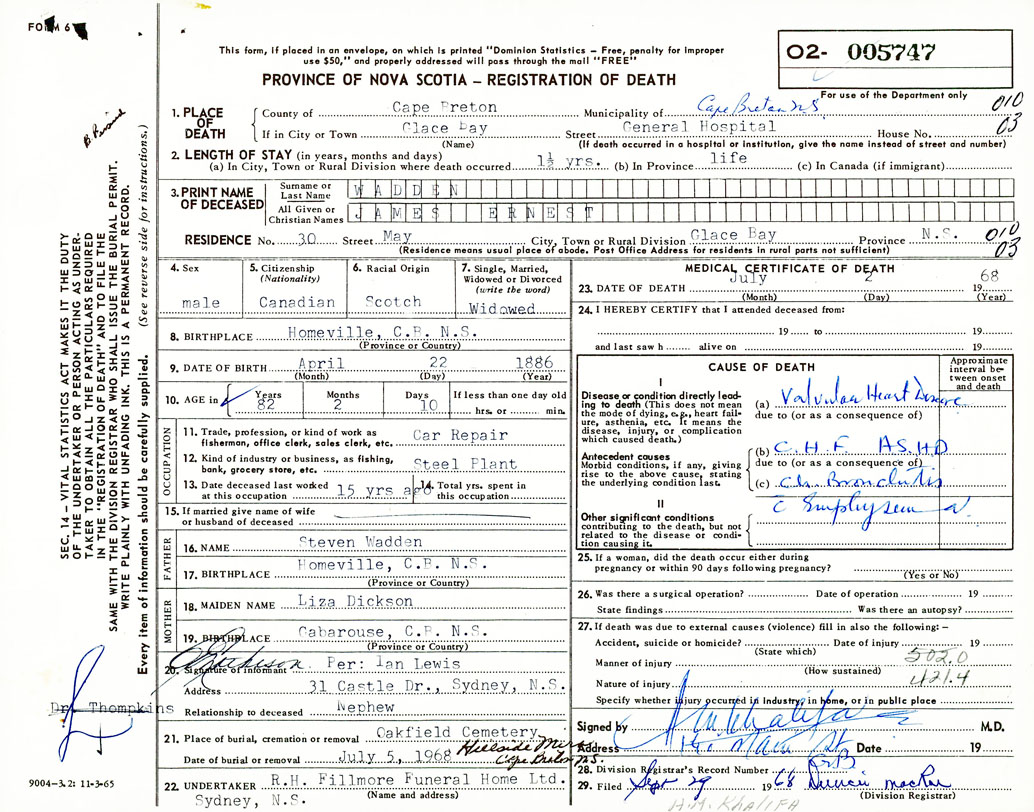 FORM 6
This form, if placed in an envelope, on which is printed "Dominion Statistics – Free, penalty for improper
use $50," and properly addressed will pass through the mail "FREE"
PROVINCE OF NOVA SCOTIA – REGISTRATION OF DEATH
O2- 005747
For use of the Department only
010
03
1. PLACE OF DEATH
County of Cape Breton Municipality of Cape Breton N.S.
If in City or Town Glace Bay Street General Hospital House No.
(Name) (If death occurred in a hospital or institution, give the name instead of street and number)
2. LENGTH OF STAY (in years, months and days)
(a) In City, Town or Rural Division where death occurred 1½ yrs. (b) In Province life (c) In Canada (if immigrant)
3. PRINT NAME OF DECEASED
Surname or Last Name WADDEN
All Given or Christian Names JAMES ERNEST
RESIDENCE No. 30 Street May City, Town or Rural Division Glace Bay Province N.S. 010
(Residence means usual place of abode. Post Office Address for residents in rural parts not sufficient) 03
4. Sex
male
5. Citizenship
(Nationality)
Canadian
6. Racial Origin
Scotch
7. Single, Married,
Widowed or Divorced
(write the word)
Widowed
8. BIRTHPLACE Homeville, C.B. N.S.
(Province or Country)
9. DATE OF BIRTH April 22 1886
(Month) (Day) (Year)
10. AGE in Years Months Days If less than one day old
82 2 10 hrs. or min.
OCCUPATION
11. Trade, profession, or kind of work as
fisherman, office clerk, sales clerk, etc. Car Repair
12. Kind of industry or business, as fishing,
bank, grocery store, etc. Steel Plant
13. Date deceased last worked
at this occupation 15 yrs ago
14. Total yrs. spent in
this occupation
15. If married give name of wife
or husband of deceased
FATHER
16. NAME Steven Wadden
17. BIRTHPLACE Homeville, C.B. N.S.
(Province or Country)
MOTHER
18. MAIDEN NAME Liza Dickson
19. BIRTHPLACE Gabarouse, C.B. N.S.
(Province or Country)
20. Signature of informant Per: Ian Lewis
Address 31 Castle Dr., Sydney, N.S.
Relationship to deceased Nephew
21. Place of burial, cremation or removal Oakfield Cemetery
Hillside Mira
Date of burial or removal July 5, 1968
Cape Breton N.S.
22. UNDERTAKER R.H. Fillmore Funeral Home Ltd.
Sydney, N.S. (Name and address)
MEDICAL CERTIFICATE OF DEATH
23. DATE OF DEATH July 2 1968
(Month) (Day) (Year)
24. I HEREBY CERTIFY that I attended deceased from:
19 to 19
and last saw h alive on 19
CAUSE OF DEATH
Approximate
interval be-
tween onset
and death
I
Disease or condition directly lead-
ing to death (This does not mean
the mode of dying, e.g., heart fail-
ure, asthenia, etc. It means the
disease, injury, or complication
which caused death.)
(a) Valvular Heart Disease
due to (or as a consequence of)
Antecedent causes
Morbid conditions, if any, giving
rise to the above cause, stating
the underlying condition last.
(b) C.H.F A.S.H.D
due to (or as a consequence of)
(c) Ch. Bronchitis
c̄ Emphysema
II
Other significant conditions
contributing to the death, but not
related to the disease or condi-
tion causing it.
25. If a woman, did the death occur either during
pregnancy or within 90 days following pregnancy?
(Yes or No)
26. Was there a surgical operation? Date of operation 19
State findings Was there an autopsy?
27. If death was due to external causes (violence) fill in also the following:–
Accident, suicide or homicide? Date of injury 19
(State which) 502.0
Manner of injury
(How sustained)
421.4
Nature of injury
Specify whether injury occurred in industry, in home, or in public place
Signed by M.D.
Address Main St Date 19
28. Division Registrar's Record Number
29. Filed Sept 29 1968 Duncan MacRae
(Division Registrar)
H.M. KHALIFA
SEC. 14 – VITAL STATISTICS ACT MAKES IT THE DUTY
OF THE UNDERTAKER OR PERSON ACTING AS UNDER-
TAKER TO OBTAIN ALL THE PARTICULARS REQUIRED
IN THE "REGISTRATION OF DEATH" AND TO FILE THE
SAME WITH THE DIVISION REGISTRAR WHO SHALL ISSUE THE BURIAL PERMIT.
WRITE PLAINLY WITH UNFADING INK. THIS IS A PERMANENT RECORD.
Every item of information should be carefully supplied. (See reverse side for instructions.)
Dr. Thompkins
9004-3.2: 11-3-65